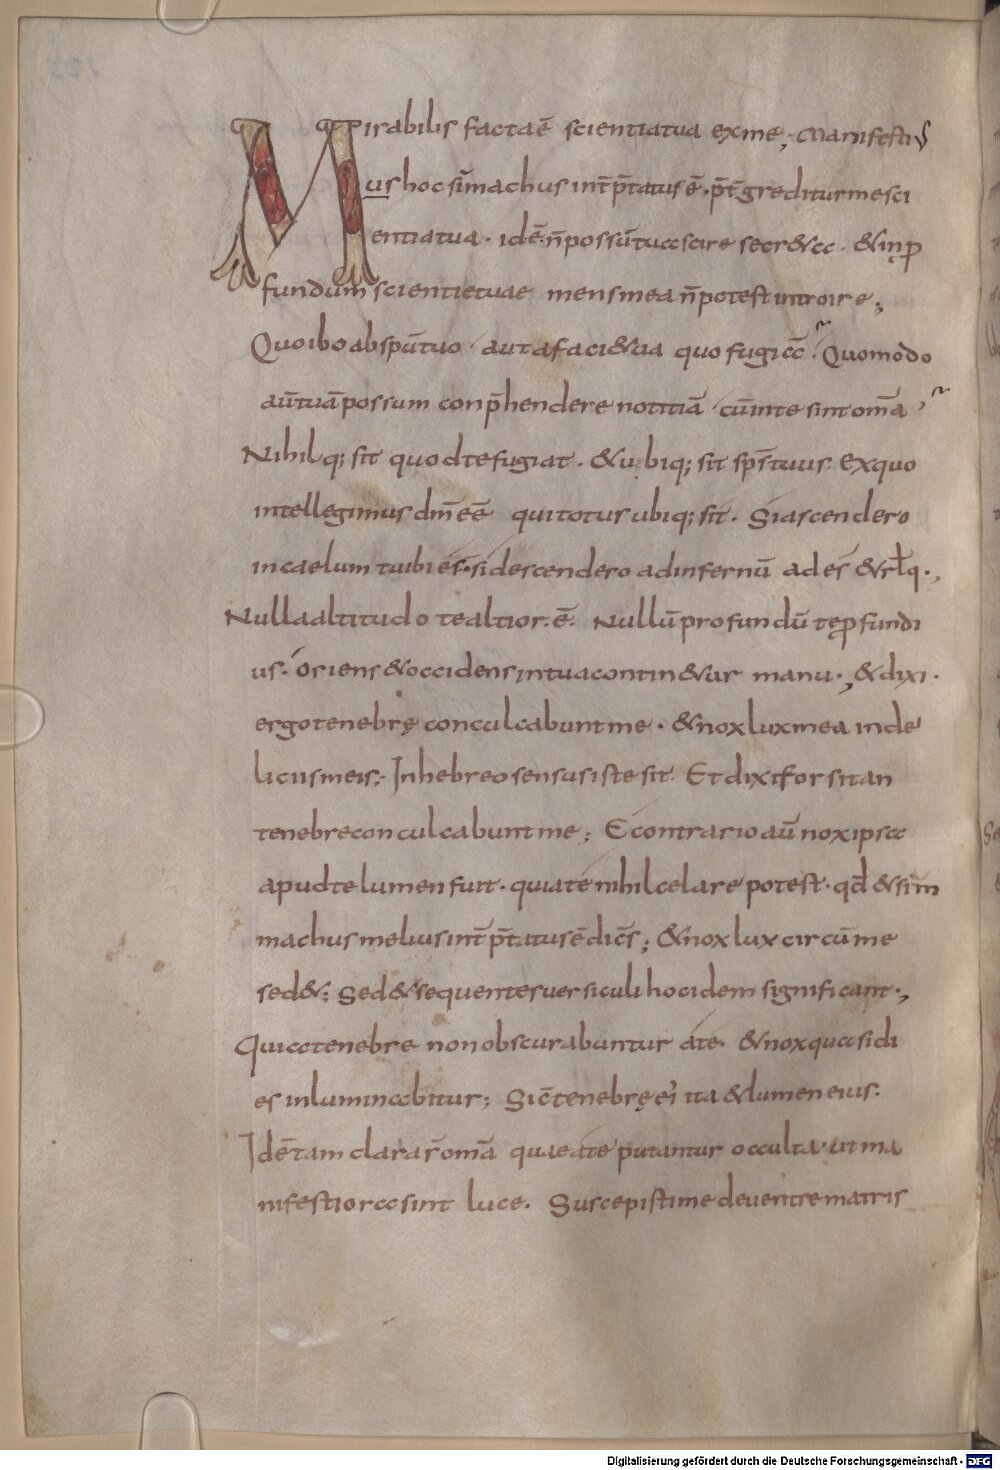 Mirabilis facta ē scientia tua ex me; Manifesti
us hoc sim̄machus int̄p̄tatus ē. p̄t̄greditur me sci
entia tua. idē. n̄ possū tua scire secr&a. & in ꝓ
fundum scientie tuae mens mea n̄ potest introire;
Quo ibo ab sp̄u tuo aut a faci& ua quo fugiā? Quomodo
aūt tuā possum conp̄hendere notitiā cū in te sint om̄a?
Nihilq; sit quod te fugiat. & ubiq; sit sp̄s tuus. Ex quo
intellegimus dm̄ eē qui totus ubiq; sit. Si ascendero
in caelum tu ibi es. si descendero ad infernū ades & rłq.,
Nulla altitudo te altior. ē. Nullū profundū te ꝓfundi
us. Oriens & occidens in tua contin&ur manu., & dixi.
ergo tenebrę conculcabunt me. & nox lux mea in de
liciis meis; In hebreo sensus iste sit. Et dixi forsitan
tenebre conculcabunt me; E contrario aū nox ipsa
apud te lumen fuit. quia te nihil celare potest. qd̄ & sim̄
machus melius int̄p̄tatus ē dicēs; & nox lux circū me
sed&; Sed & sequentes versiculi hoc idem significant.,
Quia tenebre non obscurabuntur a te. & nox quasi di
es inluminabitur; Sic̄ tenebrę ei' ita & lumen eius.
Idē tam clara sr̄ om̄a quae a te putantur occulta. ut ma
nifestiora sint luce. Suscepisti me de ventre matris
Digitalisierung gefördert durch die Deutsche Forschungsgemeinschaft - DFG